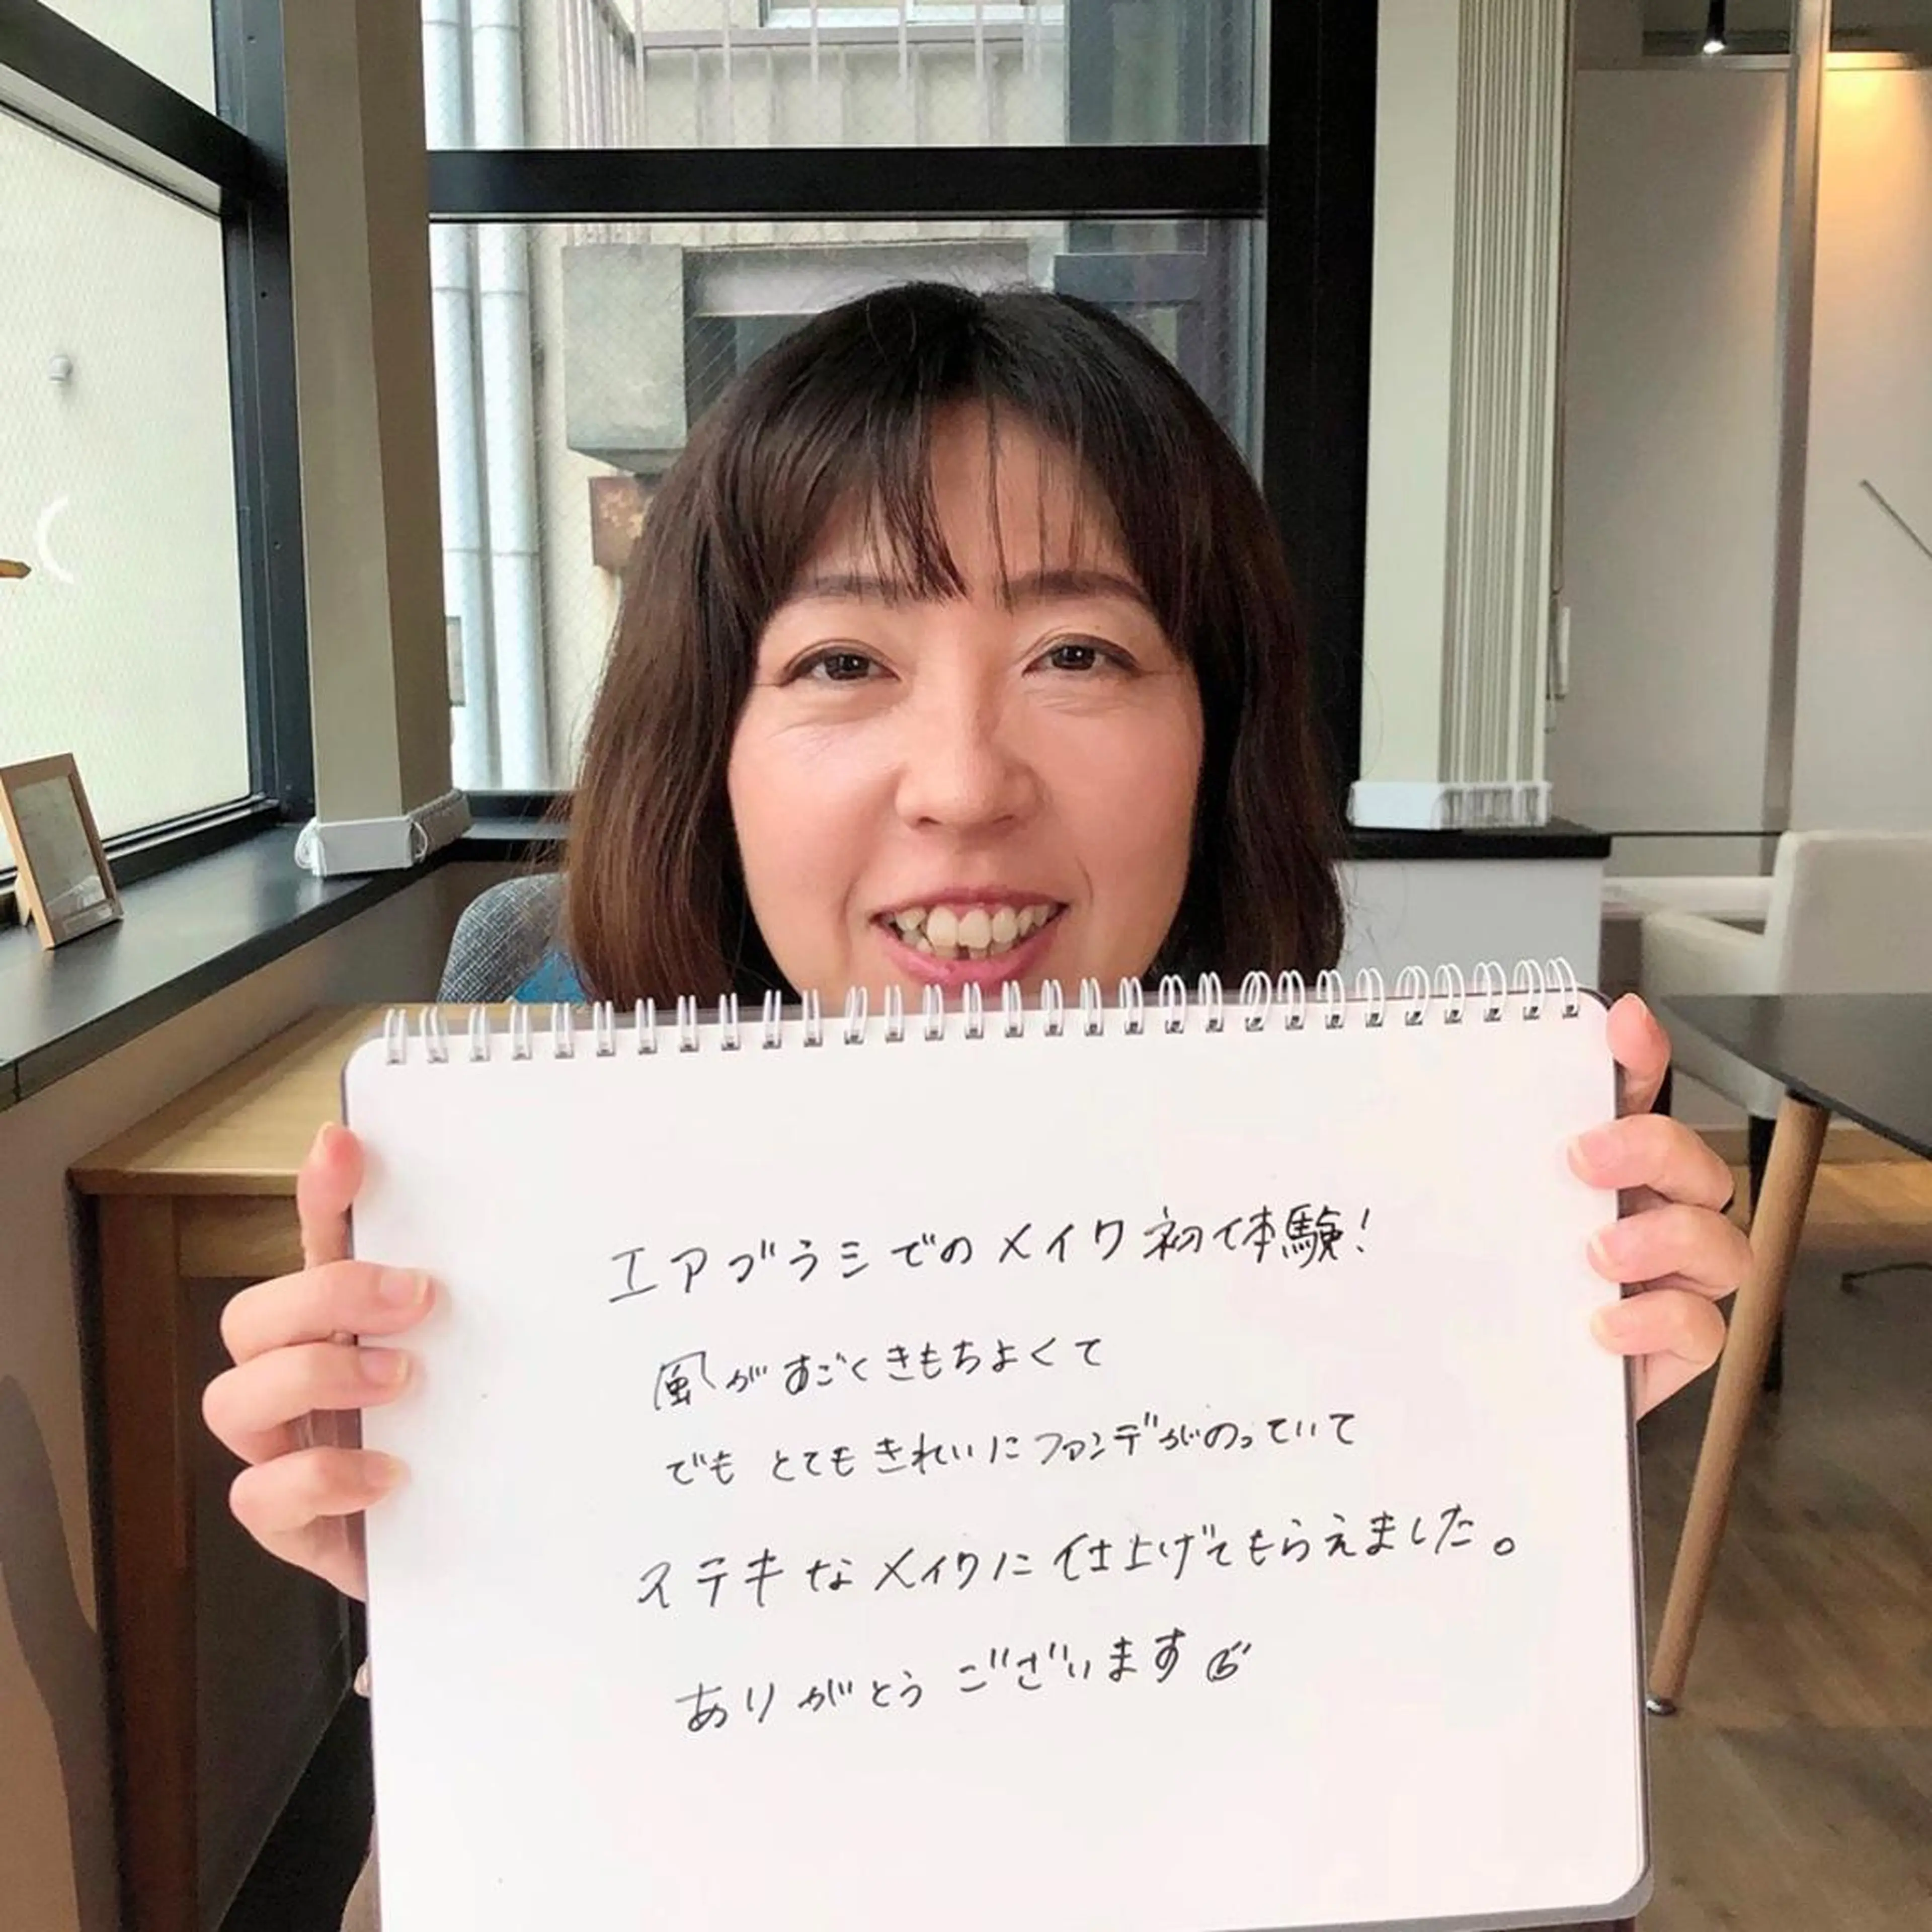 エアブラシでのメイク初体験!
風がすごくきもちよくて
でも とてもきれいにファンデがのっていて
ステキなメイクに仕上げてもらえました。
ありがとうございます